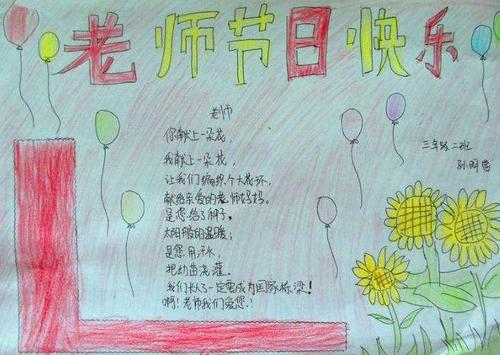 老师节日快乐
老师
你献上一朵花,
我献上一朵花,
让我们编织个大花环,
献给亲爱的老师妈妈。
是您给了种子,
太阳般的温暖;
是您用汗水,
把幼苗浇灌。
我们长大了一定要成为国家栋梁!
啊!老师我们爱您!
三年级二班
孙明